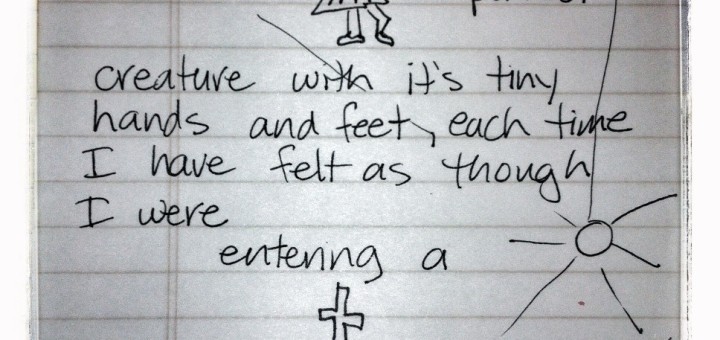 creature with it's tiny
hands and feet, each time
I have felt as though
I were
entering a